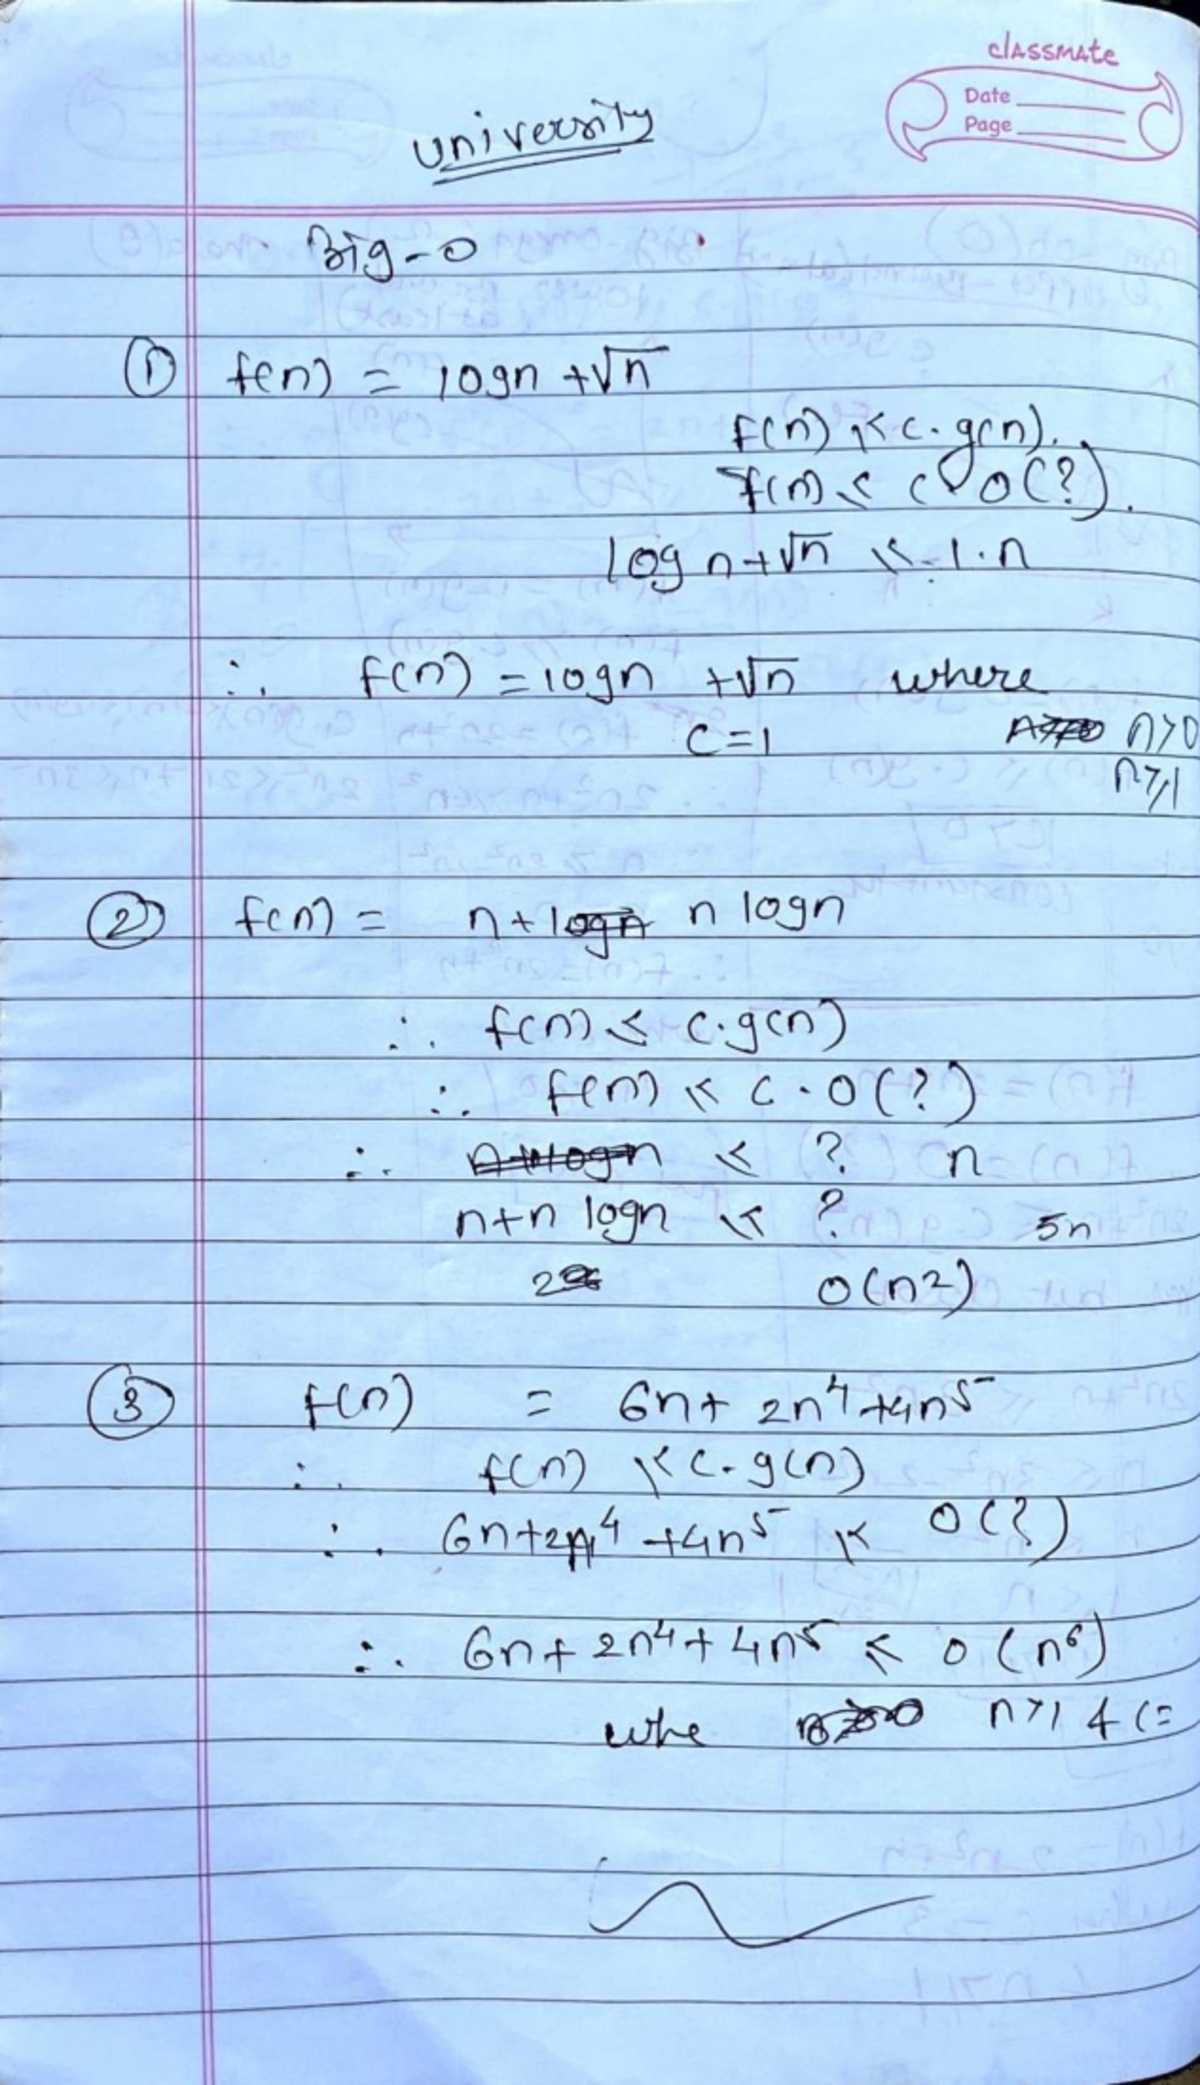 classmate
Date
Page
University
Big-O
① f(n) = logn + √n
f(n) ≤ c. g(n).
f(n) ≤ c. O(?).
log n + √n ≤ 1. n
∴ f(n) = logn + √n where
c = 1 n > 0
n ≥ 1
② f(n) = n + n logn
∴ f(n) ≤ c. g(n)
∴ f(n) ≤ c . O(?)
∴ ≤ ? n
n + n logn ≤ ? 5n
O(n²)
③ f(n) = 6n + 2n⁴ + 4n⁵
∴ f(n) ≤ c. g(n)
∴ 6n + 2n⁴ + 4n⁵ ≤ O(?)
∴ 6n + 2n⁴ + 4n⁵ ≤ O(n⁶)
whe n > 1 & c =